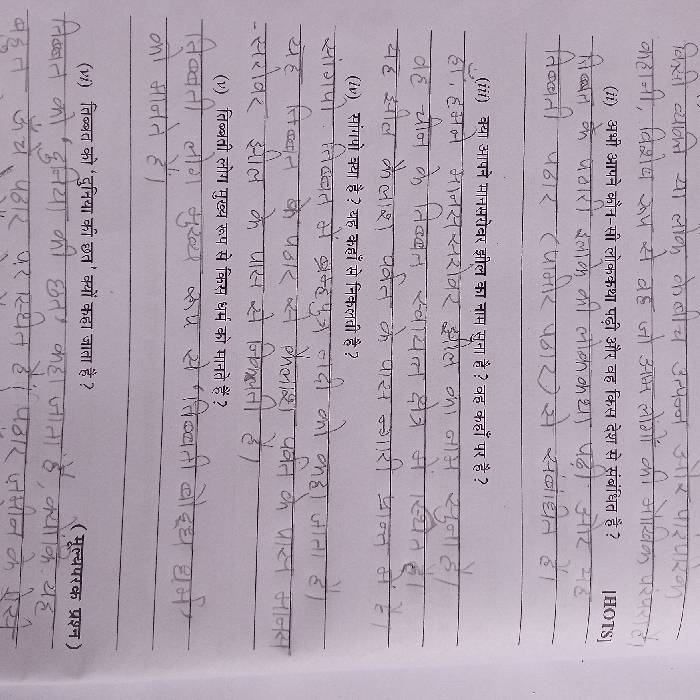 किसी व्यक्ति या लोक के बीच उत्पन्न और पारंपरिक
कहानी, विशेष रूप से वह जो आम लोगों की मौखिक परंपरा है।
(ii) अभी आपने कौन-सी लोककथा पढ़ी और वह किस देश से संबंधित है? [HOTS]
तिब्बत के पठारी इलाके की लोककथा पढ़ी और यह
तिब्बती पठार (पामीर पठार) से संबंधित है।
(iii) क्या आपने मानसरोवर झील का नाम सुना है? वह कहाँ पर है?
हाँ, हमने मानसरोवर झील का नाम सुना है।
वह चीन के तिब्बत स्वायत्त क्षेत्र में स्थित है।
यह झील कैलाश पर्वत के पास नगारी प्रान्त में है।
(iv) सांगपो क्या है? वह कहाँ से निकलती है?
सांगपो तिब्बत में ब्रह्मपुत्र नदी को कहा जाता है।
यह तिब्बत के पठार से कैलाश पर्वत के पास मानस
-सरोवर झील के पास से निकलती है।
(v) तिब्बती लोग मुख्य रूप से किस धर्म को मानते हैं?
तिब्बती लोग मुख्य रूप से 'तिब्बती बौद्ध धर्म'
को मानते हैं।
(vi) तिब्बत को 'दुनिया की छत' क्यों कहा जाता है? (मूल्यपरक प्रश्न)
तिब्बत को 'दुनिया की छत' कहा जाता है, क्योंकि यह
बहुत ऊँचे पठार पर स्थित है। पठार जमीन के ऐसे